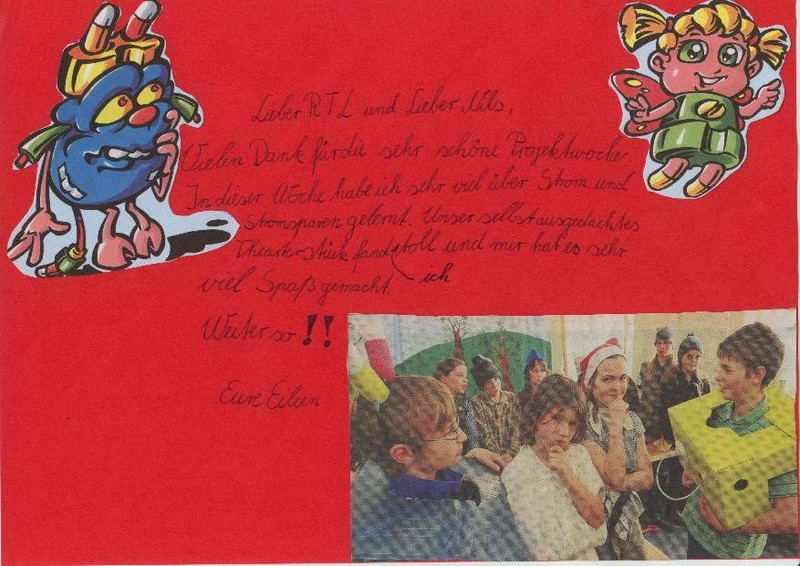 Lieber RTL und Lieber Nils,
Vielen Dank für die sehr schöne Projektwoche.
In dieser Woche habe ich sehr viel über Strom und
Stromsparen gelernt. Unser selbstausgedachtes
Thearterstück fand toll und mir hat es sehr
ich
viel Spaß gemacht.
Weiter so !!
Eure Eileen